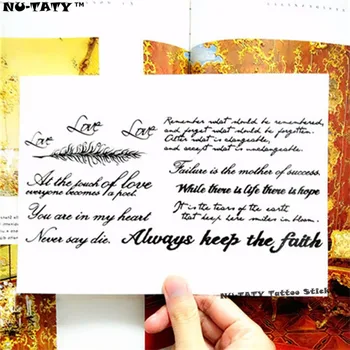 NU-TATY™
Love
Love
Love
Remember what should be remembered,
and forget what should be forgotten.
Alter what is changeable,
and accept what is unchangeable.
At the touch of love
everyone becomes a poet.
Failure is the mother of success.
While there is life there is hope
You are in my heart
It is the tears of the earth
that keep here smiles in bloom.
Never say die.
Always keep the faith
NU-TATY Tattoo Stick